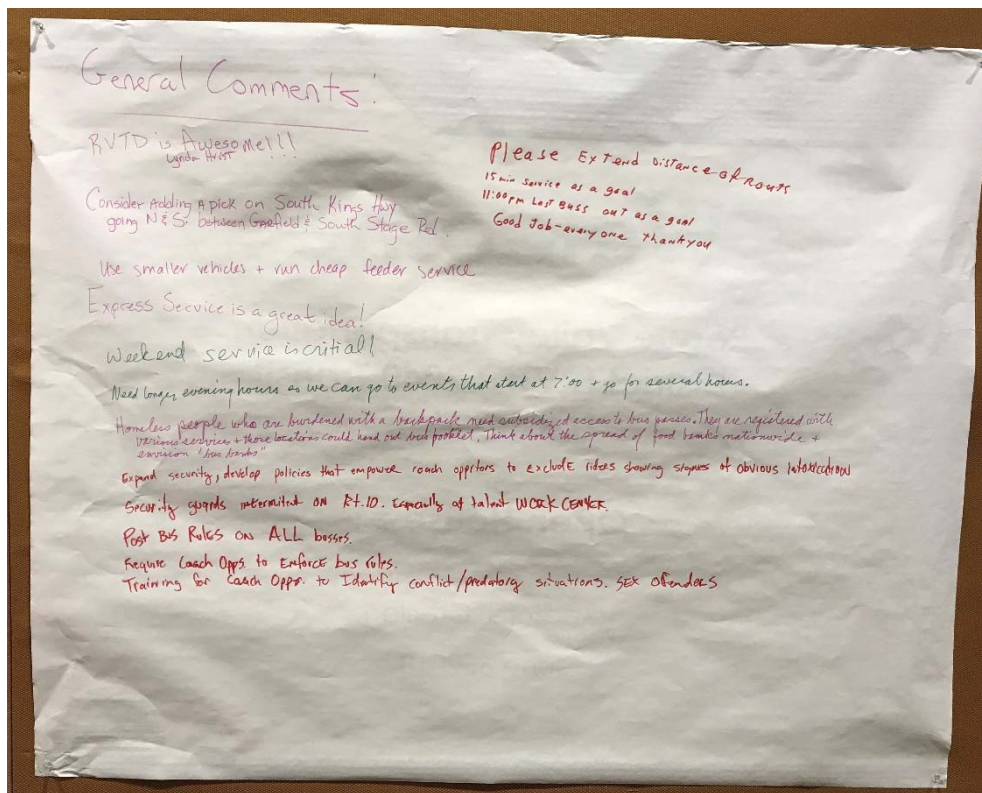 General Comments:
RVTD is Awesome!!!
Lynda Hrist
Consider Adding A pick on South Kings Hwy
going N & S. between Garfield & South Stage Rd.
Use smaller vehicles + run cheap feeder service
Express Service is a great idea!
Weekend service is critial!
Please Extend Distance of routs
15 min Service as a goal
11:00pm Last Buss out as a goal
Good Job-everyone thankyou
Need longer evening hours so we can go to events that start at 7:00 + go for several hours.
Homeless people who are burdened with a backpack need subsidized access to bus passes. They are registered with
various services + those locations could hand out bus booklet. Think about the spread of food banks nationwide +
envision "bus banks"
Expand security, develop policies that empower coach opprtors to exclude riders showing signes of obvious intoxication
Security guards intermitent on Rt.10. Especially at talent WORK CENTER.
Post Bus Rules on ALL busses.
Require Coach Opps. to Enforce bus rules.
Training for Coach Oppr. to Identify conflict/predatory situations. SEX ofenders